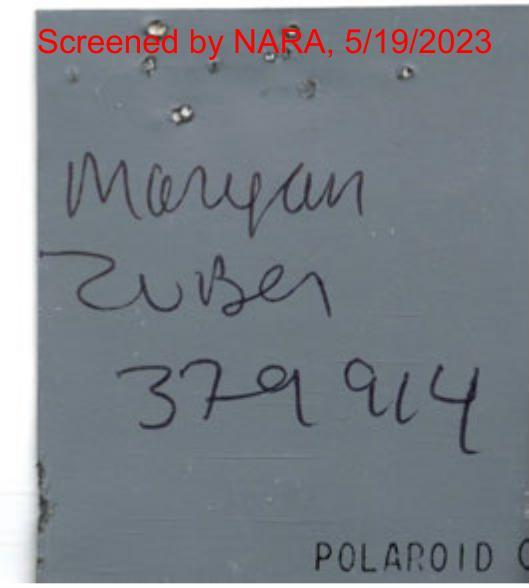 Screened by NARA, 5/19/2023
Maryan
Zuber
379914
POLAROID